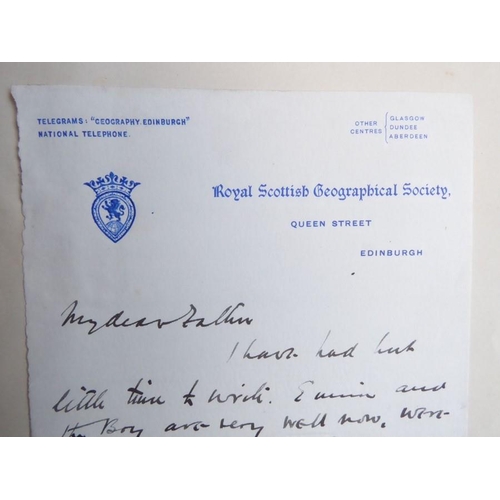 TELEGRAMS: "GEOGRAPHY. EDINBURGH"
NATIONAL TELEPHONE.
OTHER CENTRES
GLASGOW
DUNDEE
ABERDEEN
Royal Scottish Geographical Society,
QUEEN STREET
EDINBURGH
My dear Father
I have had but
little time to write. Emmie and
the Boy are very well now, were